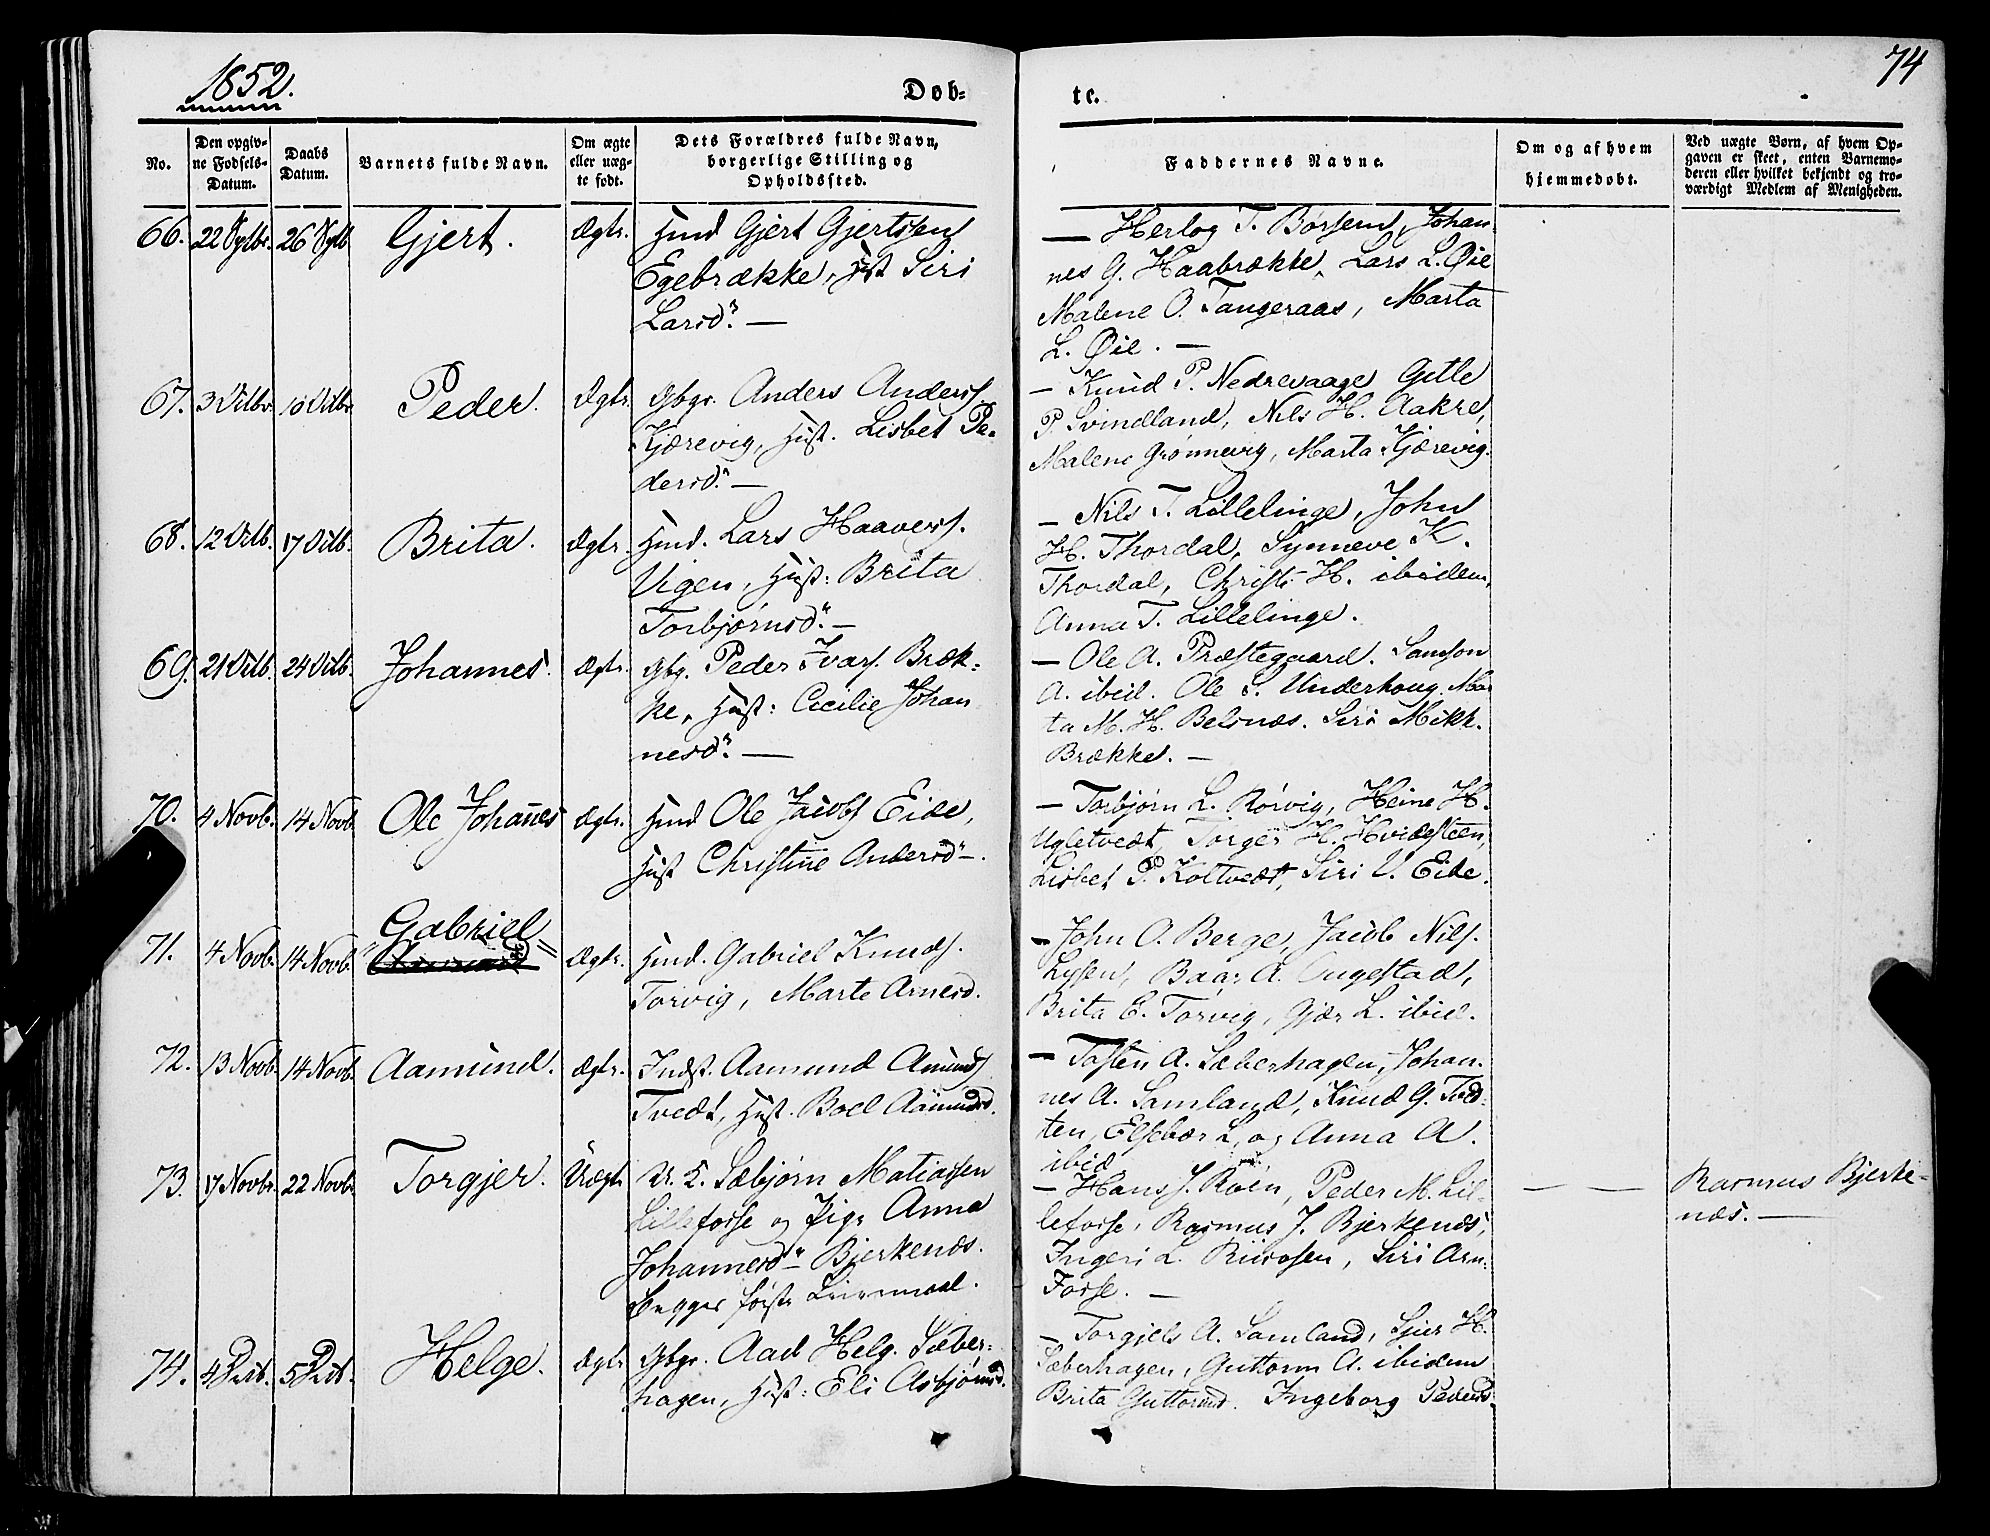 1852.
Døb-
te.
74
No.
Den opgiv-
ne Fødsels-
Datum.
Daabs
Datum.
Barnets fulde Navn.
Om ægte
eller uæg-
te født.
Dets Forældres fulde Navn,
borgerlige Stilling og
Opholdssted.
Faddernes Navne.
Om og af hvem
hjemmedøbt.
Ved uægte Børn, af hvem Op-
gaven er skeet, enten Barnemo-
deren eller hvilket bekjendt og tro-
værdigt Medlem af Menigheden.
66. 22 Sptbr. 26 Sptb Gjert. Ægte. Hmd Gjert Gjertssen
Egebrække, Hust Siri
Larsd. —
— Herlog T. Børsem, Johan-
nes G. Haabrække, Lars L. Øie
Malene O. Tangeraas, Marta
L. Øie. —
67. 3 Octbr. 10 Octbr. Peder. Ægte. Gbgr. Anders Anderss.
Kjærevig, Hust. Lisbet Pe-
dersd. —
— Knud P. Nedrevaage Gitle
P. Svindland, Nils H. Aakre,
Malene Grønnevig, Marta Kjærevig.
68. 12 Octb. 17 Octb. Brita. Ægte. Hmd. Lars Haavers.
Vigen, Hust: Brita
Torbjørnsd. —
— Nils T. Lillelinge, John
H. Thordal, Synneve K.
Thordal, Christi H. ibidem,
Anna T. Lillelinge.
69. 21 Octb. 24 Octb. Johannes. Ægte. Gbg. Peder Ivars. Bræk-
ke, Hust: Cicilie Johan
nesd. —
— Ole A. Præstegaard. Samson
A. ibid. Ole S. Underhoug. Mar
ta M. H. Belsnæs. Siri Mikk.
Brække. —
70. 4 Novb. 14 Novb Ole Johannes Ægte. Hmd Ole Jacobs Eide,
Hust Christine Andersd —.
— Torbjørn L. Rørvig, Heine H.
Ugletvedt, Torger H. Hvidesteen,
Lisbet P. Koltvedt, Siri V. Eide.
71. 4 Novb. 14 Novb. Gabriel Ægte. Hmd. Gabriel Knuds.
Torvig, Marte Arnesd.
— John O. Berge, Jacob Nils.
Lysen, Baar A. Augestad,
Brita E. Torvig, Gjær L. ibid.
72. 13 Novb. 14 Novb. Aamund. Ægte. Indst. Aamund Amunds
Tvedt, Hust. Boel Aamundsd.
— Tosten A. Sæberhagen, Johan-
nes A. Samland, Knud G.
ten, Elsebær L, og Anna A.
ibid
73. 17 Novbr. 22 Novb. Torgjer. Uægte U. K. Sæbjørn Matiassen
Lillefosse og Pige Anna
Johannesd Bjerkenæs.
Begges første Leiermaal.
— Hans J. Røen, Peder M. Lil-
lefosse, Rasmus J. Bjerkenæs,
Ingeri L. , Siri Arn.
Fosse. —
— —
Rasmus Bjerke-
næs. —
74. 4 Decb. 5 Decb. Helge. Ægte Gbgr. Aad Helg. Sæber-
hagen, Hust: Eli Asbjørnsd.
— Torgjels A. Samland, Sjur H.
Sæberhagen, Guttorm A. ibidem
Brita Guttormsd. Ingeborg Pedersd.